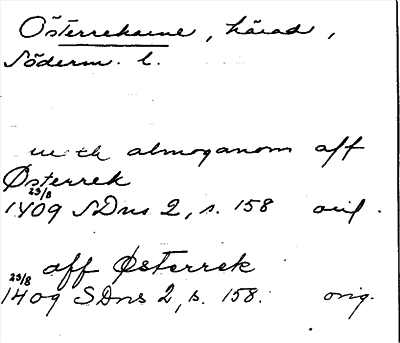 Österrekarne, härad,
Söderm. l.
meth almoganom aff
Østerrek
23/8
1409 SDns 2, s. 158 orig.
aff Østerrek
23/8
1409 SDns 2, s. 158. orig.